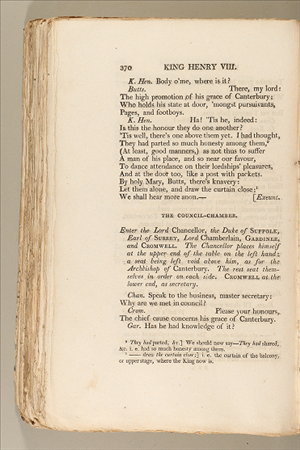 370 KING HENRY VIII.
K. Hen. Body o'me, where is it?
Butts. There, my lord:
The high promotion of his grace of Canterbury;
Who holds his state at door, 'mongst pursuivants,
Pages, and footboys.
K. Hen. Ha! 'Tis he, indeed:
Is this the honour they do one another?
'Tis well, there's one above them yet. I had thought,
They had parted so much honesty among them,⁶
(At least, good manners,) as not thus to suffer
A man of his place, and so near our favour,
To dance attendance on their lordships' pleasures,
And at the door too, like a post with packets.
By holy Mary, Butts, there's knavery:
Let them alone, and draw the curtain close;⁷
We shall hear more anon.— [Exeunt.
THE COUNCIL-CHAMBER.
Enter the Lord Chancellor, the Duke of SUFFOLK,
Earl of SURREY, Lord Chamberlain, GARDINER,
and CROMWELL. The Chancellor places himself
at the upper end of the table on the left hand;
a seat being left void above him, as for the
Archbishop of Canterbury. The rest seat them-
selves in order on each side. CROMWELL at the
lower end, as secretary.
Chan. Speak to the business, master secretary:
Why are we met in council?
Crom. Please your honours,
The chief cause concerns his grace of Canterbury.
Gar. Has he had knowledge of it?
⁶ They had parted, &c.] We should now say—They had shared,
&c. i. e. had so much honesty among them.
⁷ —— draw the curtain close;] i. e. the curtain of the balcony,
or upper stage, where the King now is.